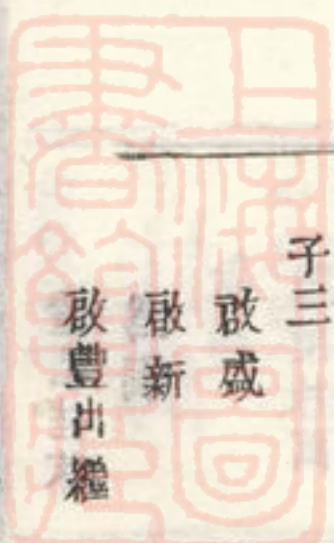 子三
啟盛
啟新
啟豐出繼